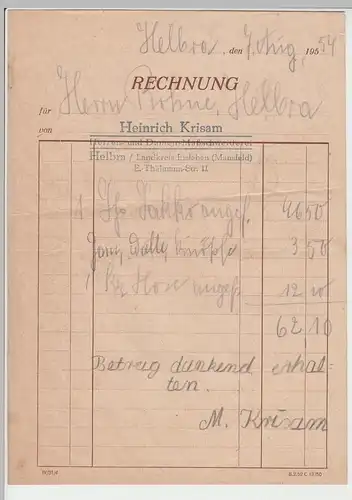 Helbra, den 7. Aug. 1954
RECHNUNG
für Herrn Böhme, Helbra
von Heinrich Krisam
Herren- und Damen-Maßschneiderei
Helbra / Landkreis Eisleben (Mansfeld)
E.-Thälmann-Str. 11
1 Sakko angef. 46 50
3 50
1 Hose angef. 12 10
62 10
Betrag dankend erhal-
ten.
M. Krisam